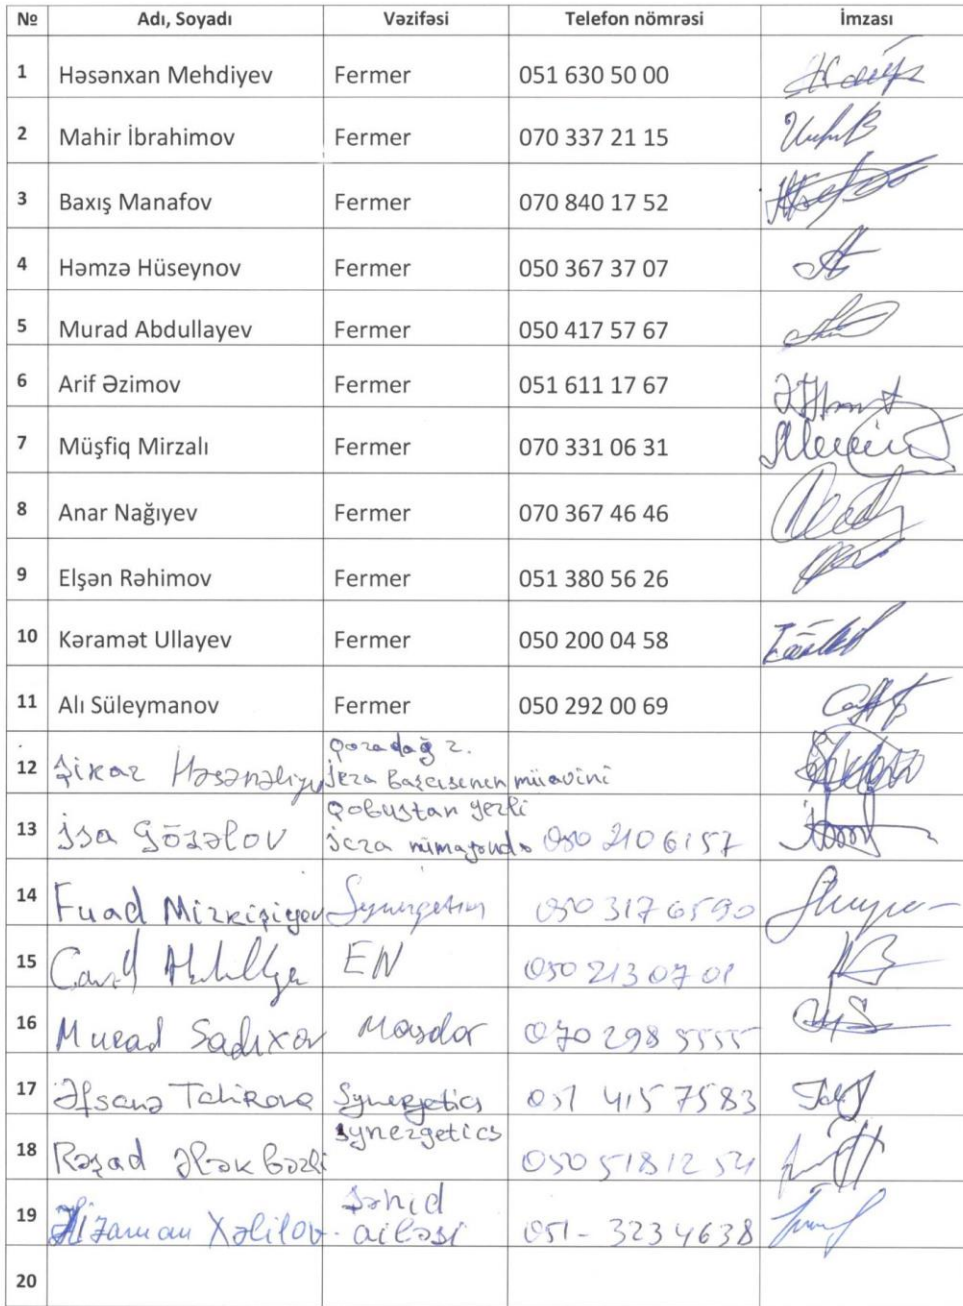 № Adı, Soyadı Vəzifəsi Telefon nömrəsi İmzası
1 Həsənxan Mehdiyev Fermer 051 630 50 00
2 Mahir İbrahimov Fermer 070 337 21 15
3 Baxış Manafov Fermer 070 840 17 52
4 Həmzə Hüseynov Fermer 050 367 37 07
5 Murad Abdullayev Fermer 050 417 57 67
6 Arif Əzimov Fermer 051 611 17 67
7 Müşfiq Mirzalı Fermer 070 331 06 31
8 Anar Nağıyev Fermer 070 367 46 46
9 Elşən Rəhimov Fermer 051 380 56 26
10 Kəramət Ullayev Fermer 050 200 04 58
11 Alı Süleymanov Fermer 050 292 00 69
Qaradağ r.
12 Şikar Həsənəliyev İcra başçısının müavini
Qobustan yerli
13 İsa Gözəlov icra 050 210 61 57
14 Fuad Mirkişiyev Synergetics 050 317 65 90
15 EN 050 213 07 01
16 Murad Sadıxov Masdar 070 298 5555
17 Əfsanə Tahirova Synergetics 051 415 75 83
synergetics
18 Rəşad Ələkbərli 050 518 12 54
Şəhid
19 Əlizaman Xəlilov - ailəsi 051 - 323 46 38
20